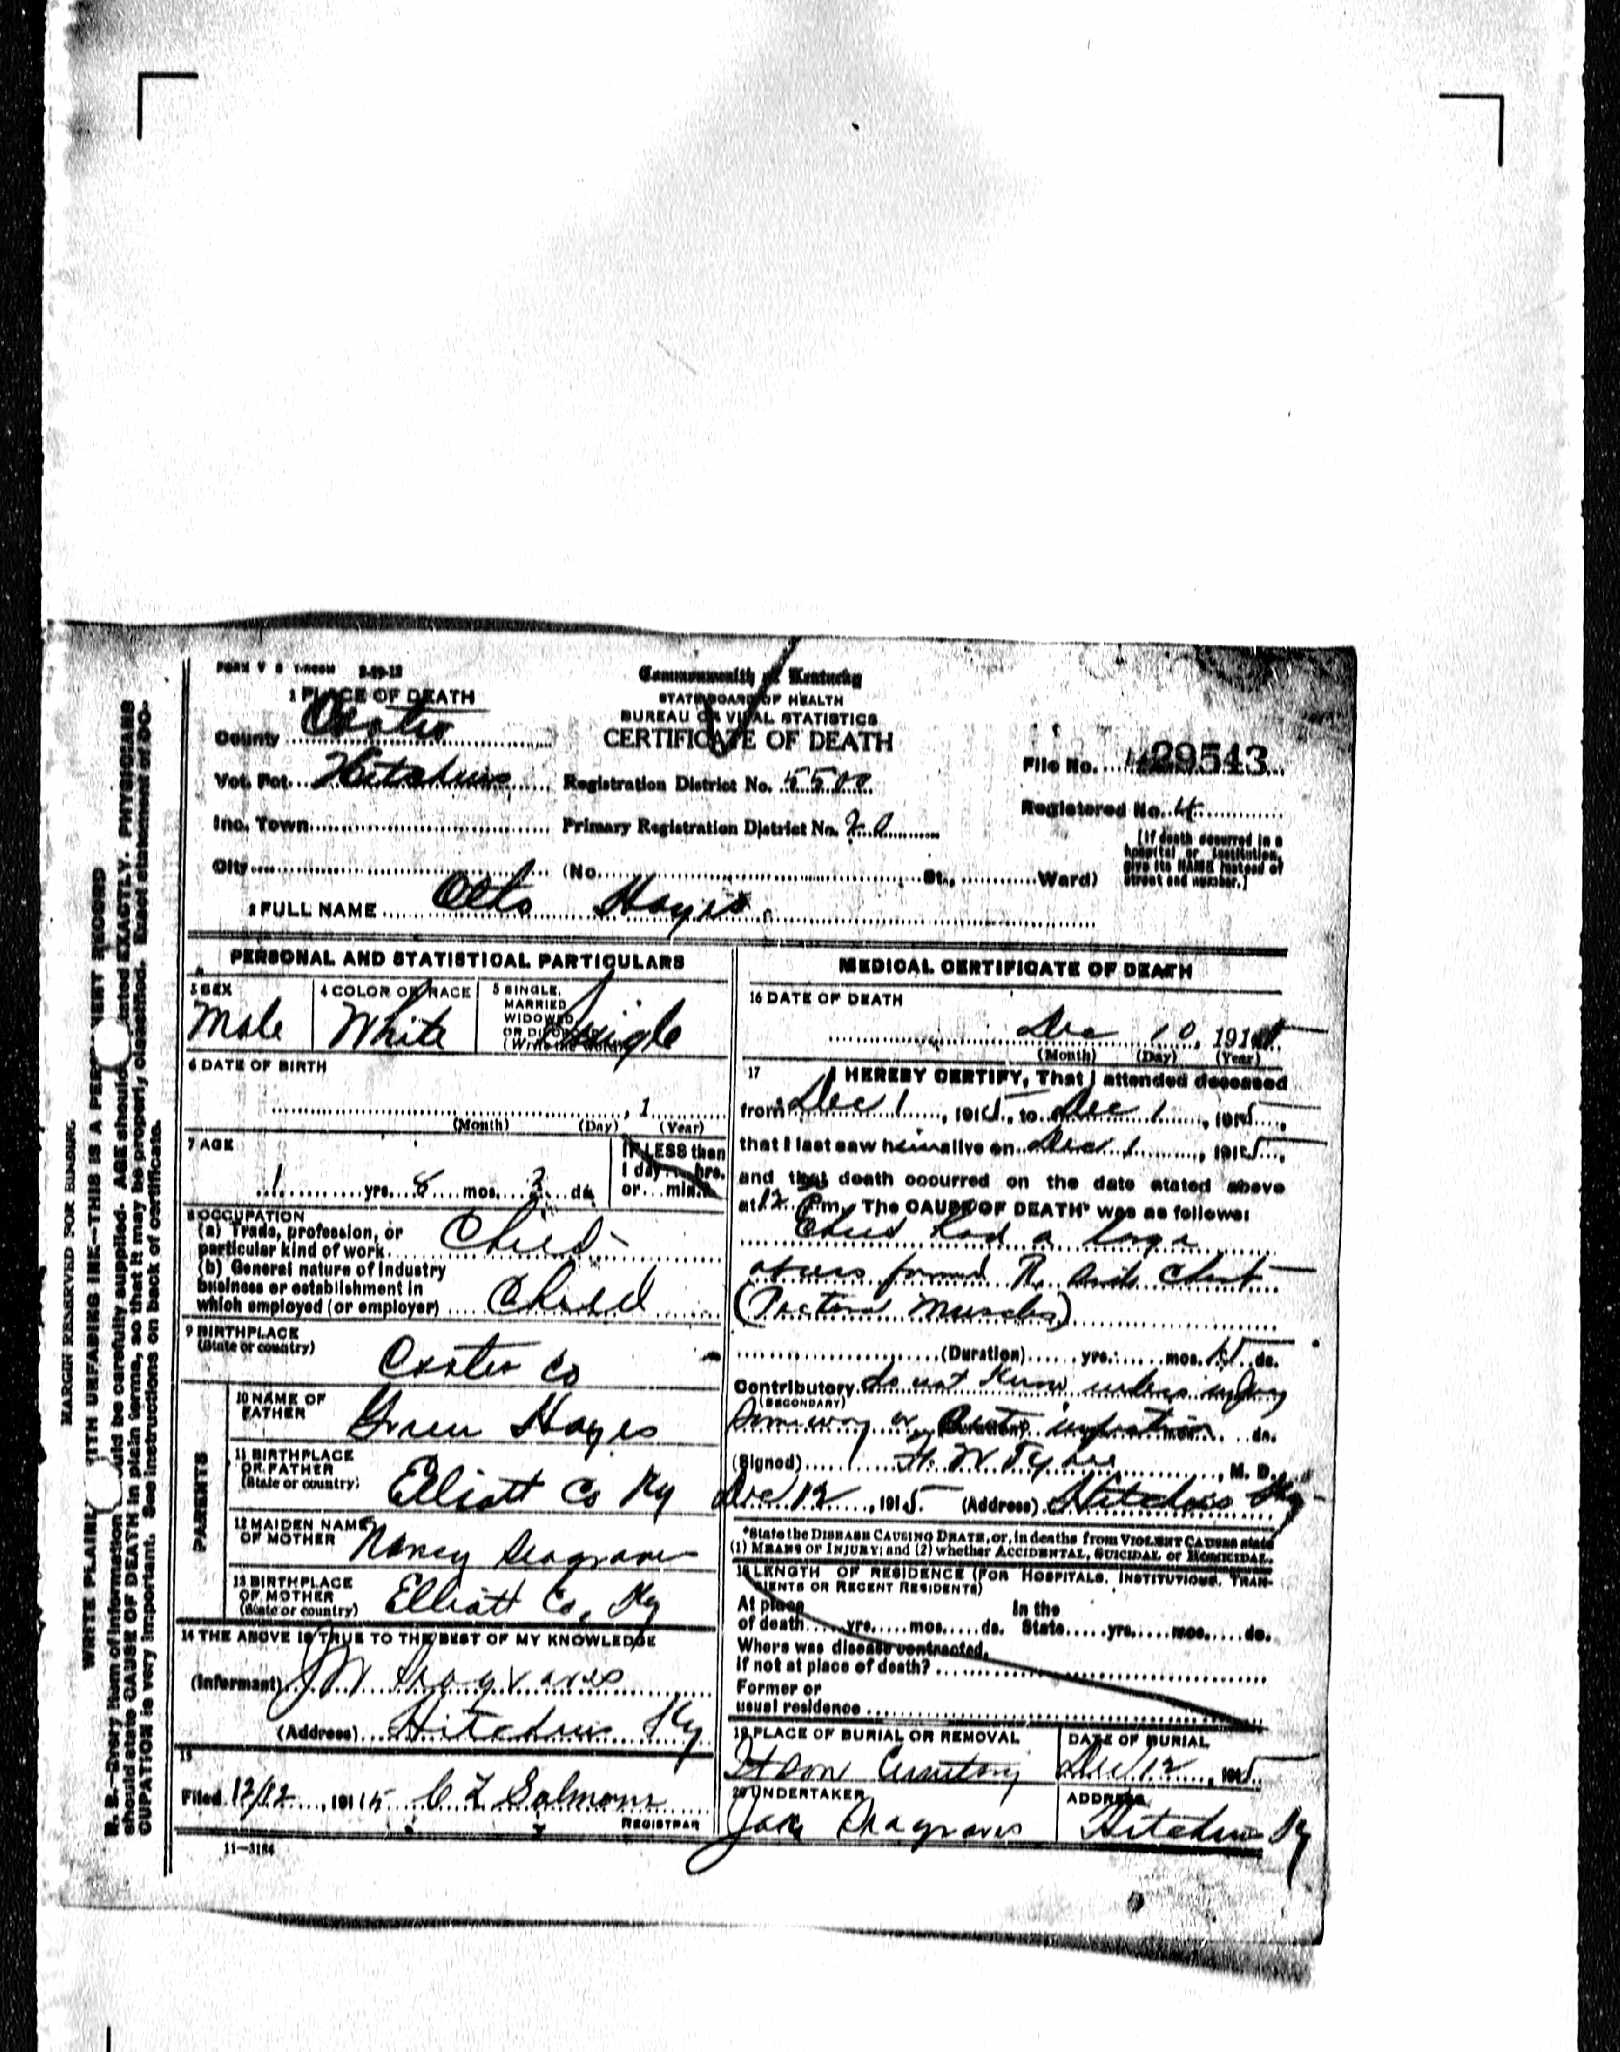 FORM V S 1-100M 3-29-12
Commonwealth of Kentucky
1 PLACE OF DEATH
STATE BOARD OF HEALTH
BUREAU OF VITAL STATISTICS
CERTIFICATE OF DEATH
County Carter
File No. 29543
Vot. Pct. Hitchins Registration District No. 5500
Registered No. 4
Inc. Town Primary Registration District No. 20
[If death occurred in a
hospital or institution,
give its NAME instead of
street and number.]
City (No. St., Ward)
2 FULL NAME Hayes
PERSONAL AND STATISTICAL PARTICULARS
3 SEX
Male
4 COLOR OR RACE
White
5 SINGLE,
MARRIED
WIDOWED
OR DIVORCED
(Write the word)
Single
6 DATE OF BIRTH
, 1
(Month) (Day) (Year)
7 AGE
1 yrs. 8 mos. 2 ds.
IF LESS than
1 day hrs.
or min.
8 OCCUPATION
(a) Trade, profession, or
particular kind of work Child
(b) General nature of industry
business or establishment in
which employed (or employer) Child
9 BIRTHPLACE
(State or country)
Carter Co
PARENTS
10 NAME OF
FATHER
Green Hayes
11 BIRTHPLACE
OF FATHER
(State or country)
Elliott Co Ky
12 MAIDEN NAME
OF MOTHER
Nancy Seagraves
13 BIRTHPLACE
OF MOTHER
(State or country)
Elliott Co, Ky
14 THE ABOVE IS TRUE TO THE BEST OF MY KNOWLEDGE
(Informant) J M Seagraves
(Address) Hitchins Ky
15
Filed 12/12, 1915 C Z Salmons
REGISTRAR
11-3184
MEDICAL CERTIFICATE OF DEATH
16 DATE OF DEATH
Dec 10, 191
(Month) (Day) (Year)
17 I HEREBY CERTIFY, That I attended deceased
from Dec 1, 1915, to Dec 1, 1915,
that I last saw him alive on Dec 1, 1915,
and that death occurred on the date stated above
at 12 P m. The CAUSE OF DEATH* was as follows:
Child had a large
abscess formed R. side Chest
(Pectoral Muscles)
(Duration) yrs. mos. 15 ds.
Contributory do not know unless injury
(SECONDARY)
some way or infection ds.
(Signed) H. W. Tyree, M. D.
Dec 12, 1915 (Address) Hitchins Ky
*State the DISEASE CAUSING DEATH, or, in deaths from VIOLENT CAUSES state
(1) MEANS OF INJURY; and (2) whether ACCIDENTAL, SUICIDAL or HOMICIDAL.
18 LENGTH OF RESIDENCE (FOR HOSPITALS, INSTITUTIONS, TRAN-
SIENTS OR RECENT RESIDENTS)
At place In the
of death yrs. mos. ds. State yrs. mos. ds.
Where was disease contracted,
if not at place of death?
Former or
usual residence
19 PLACE OF BURIAL OR REMOVAL
Cemetery
DATE OF BURIAL
Dec 12, 1915
20 UNDERTAKER
Jake Seagraves
ADDRESS
Hitchins Ky
MARGIN RESERVED FOR BINDING
WRITE PLAINLY WITH UNFADING INK—THIS IS A PERMANENT RECORD
N. B.—Every item of information should be carefully supplied. AGE should be stated EXACTLY. PHYSICIANS
should state CAUSE OF DEATH in plain terms, so that it may be properly classified. Exact statement of OC-
CUPATION is very important. See instructions on back of certificate.